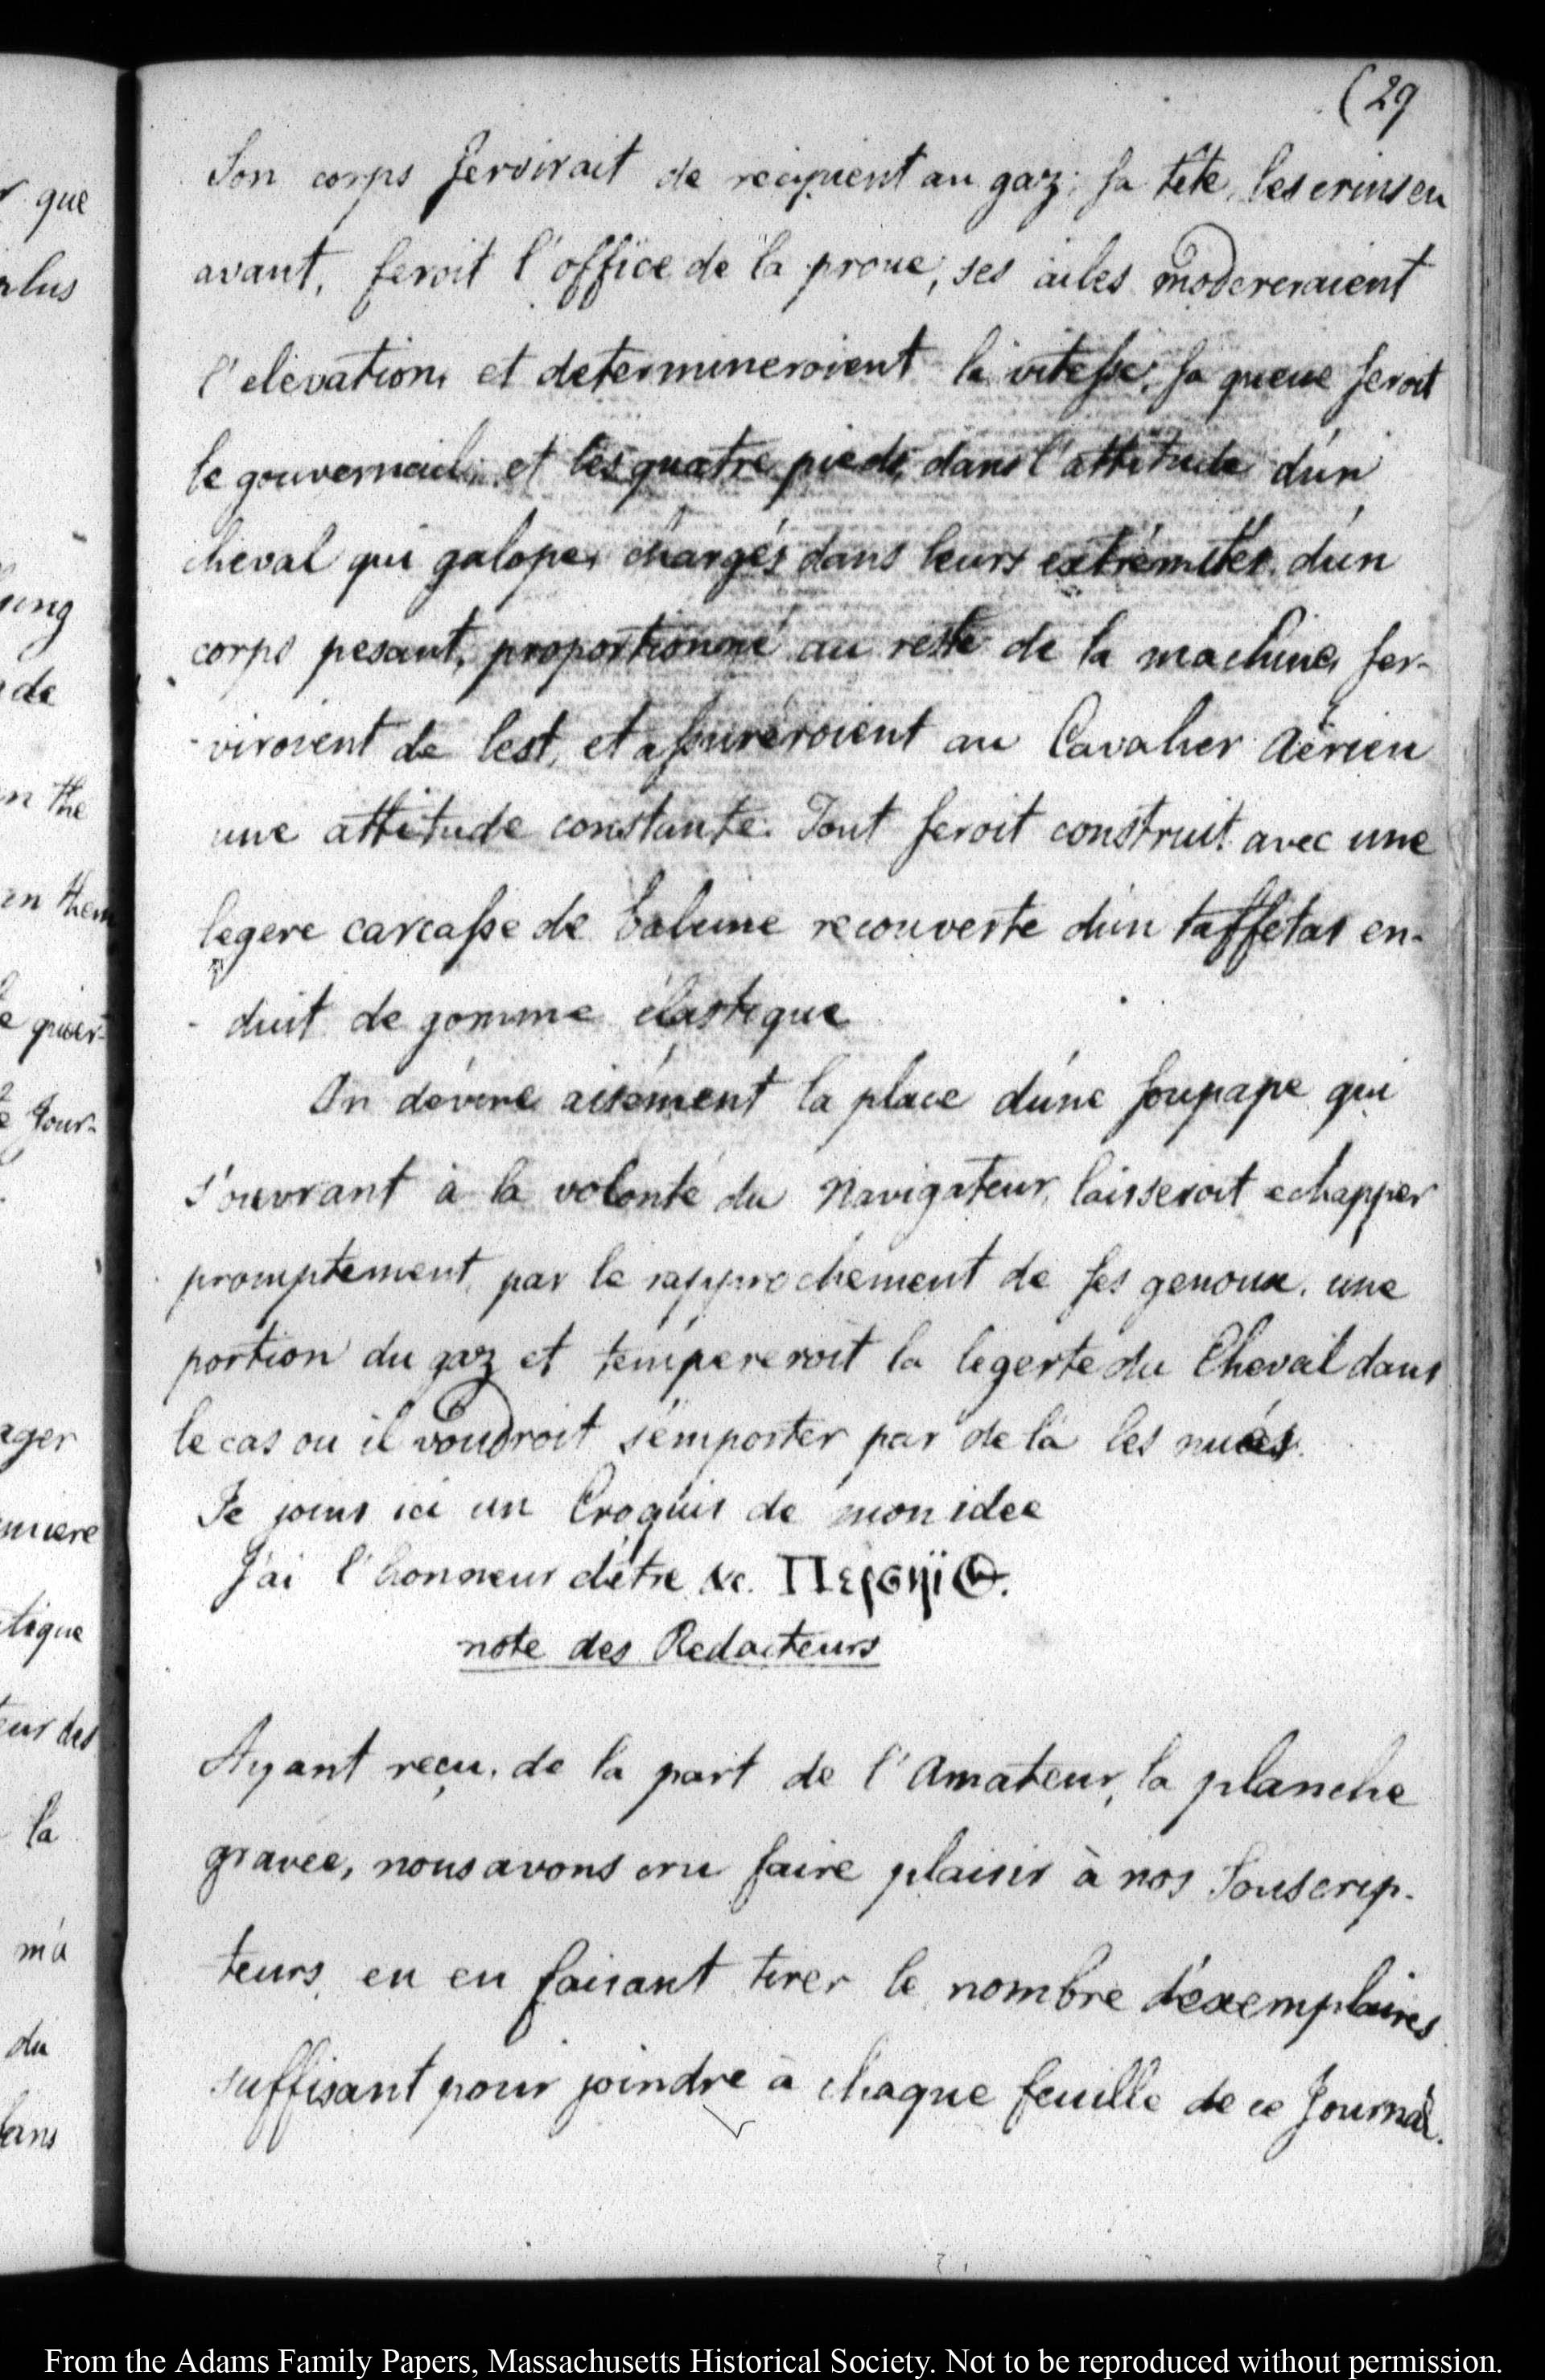 (29
Son corps servirait de recipient au gaz; sa tête, les crins en
avant, feroit l'office de la proue, ses ailes modereraient
l'elevation, et determineroient la vitesse; sa queue seroit
le gouvernail; et les quatre pieds, dans l'attitude d'un
cheval qui galope, chargés dans leurs extrémités d'un
corps pesant, proportionné au reste de la machine, ser-
-viroient de lest, et assureroient au Cavalier Aérien
une attitude constante. Tout seroit construit avec une
legere carcasse de baleine recouverte d'un taffetas en-
-duit de gomme élastique
On dévine aisément la place d'une soupape qui
s'ouvrant à la volonté du Navigateur, laisseroit echapper
promptement, par le rapprochement de ses genoux, une
portion du gaz et tempereroit la legerte du Cheval dans
le cas ou il voudroit s'emporter par de là les nuées.
Je joins ici un Croquis de mon idee
J'ai l'honneur d'être &c.
note des Redacteurs
Ayant reçu, de la part de l'Amateur, la planche
gravée, nous avons cru faire plaisir à nos Souscrip-
teurs, en en faisant tirer le nombre d'exemplaires
suffisant pour joindre à chaque feuille de ce Journal.
que
plus
de
in the
in them
Jour-
tique
la
m'a
du
From the Adams Family Papers, Massachusetts Historical Society. Not to be reproduced without permission.